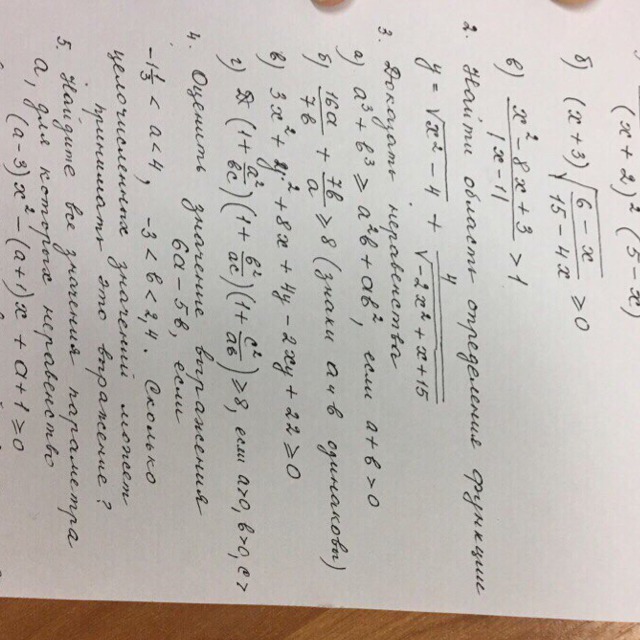 (x + 2)² (5 - x)
б) (x+3) √((6 - x)/(15 - 4x)) ≥ 0
в) (x² - 8x + 3)/|x - 1| > 1
2. Найти область определения функции
y = √(x² - 4) + 4/√(-2x² + x + 15)
3. Доказать неравенства
а) a³ + b³ ≥ a²b + ab², если a + b > 0
б) 16a/7b + 7b/a ≥ 8 (знаки a и b одинаковы)
в) 3x² + y² + 8x + 4y - 2xy + 22 ≥ 0
г) (1 + a²/bc)(1 + b²/ac)(1 + c²/ab) ≥ 8, если a>0, b>0, c>
4. Оценить значение выражения
6a - 5b, если
-1 1/3 < a < 4, -3 < b < 2,4. Сколько
целочисленных значений может
принимать это выражение?
5. Найдите все значения параметра
a, для которых неравенство
(a-3)x² - (a+1)x + a+1 ≥ 0